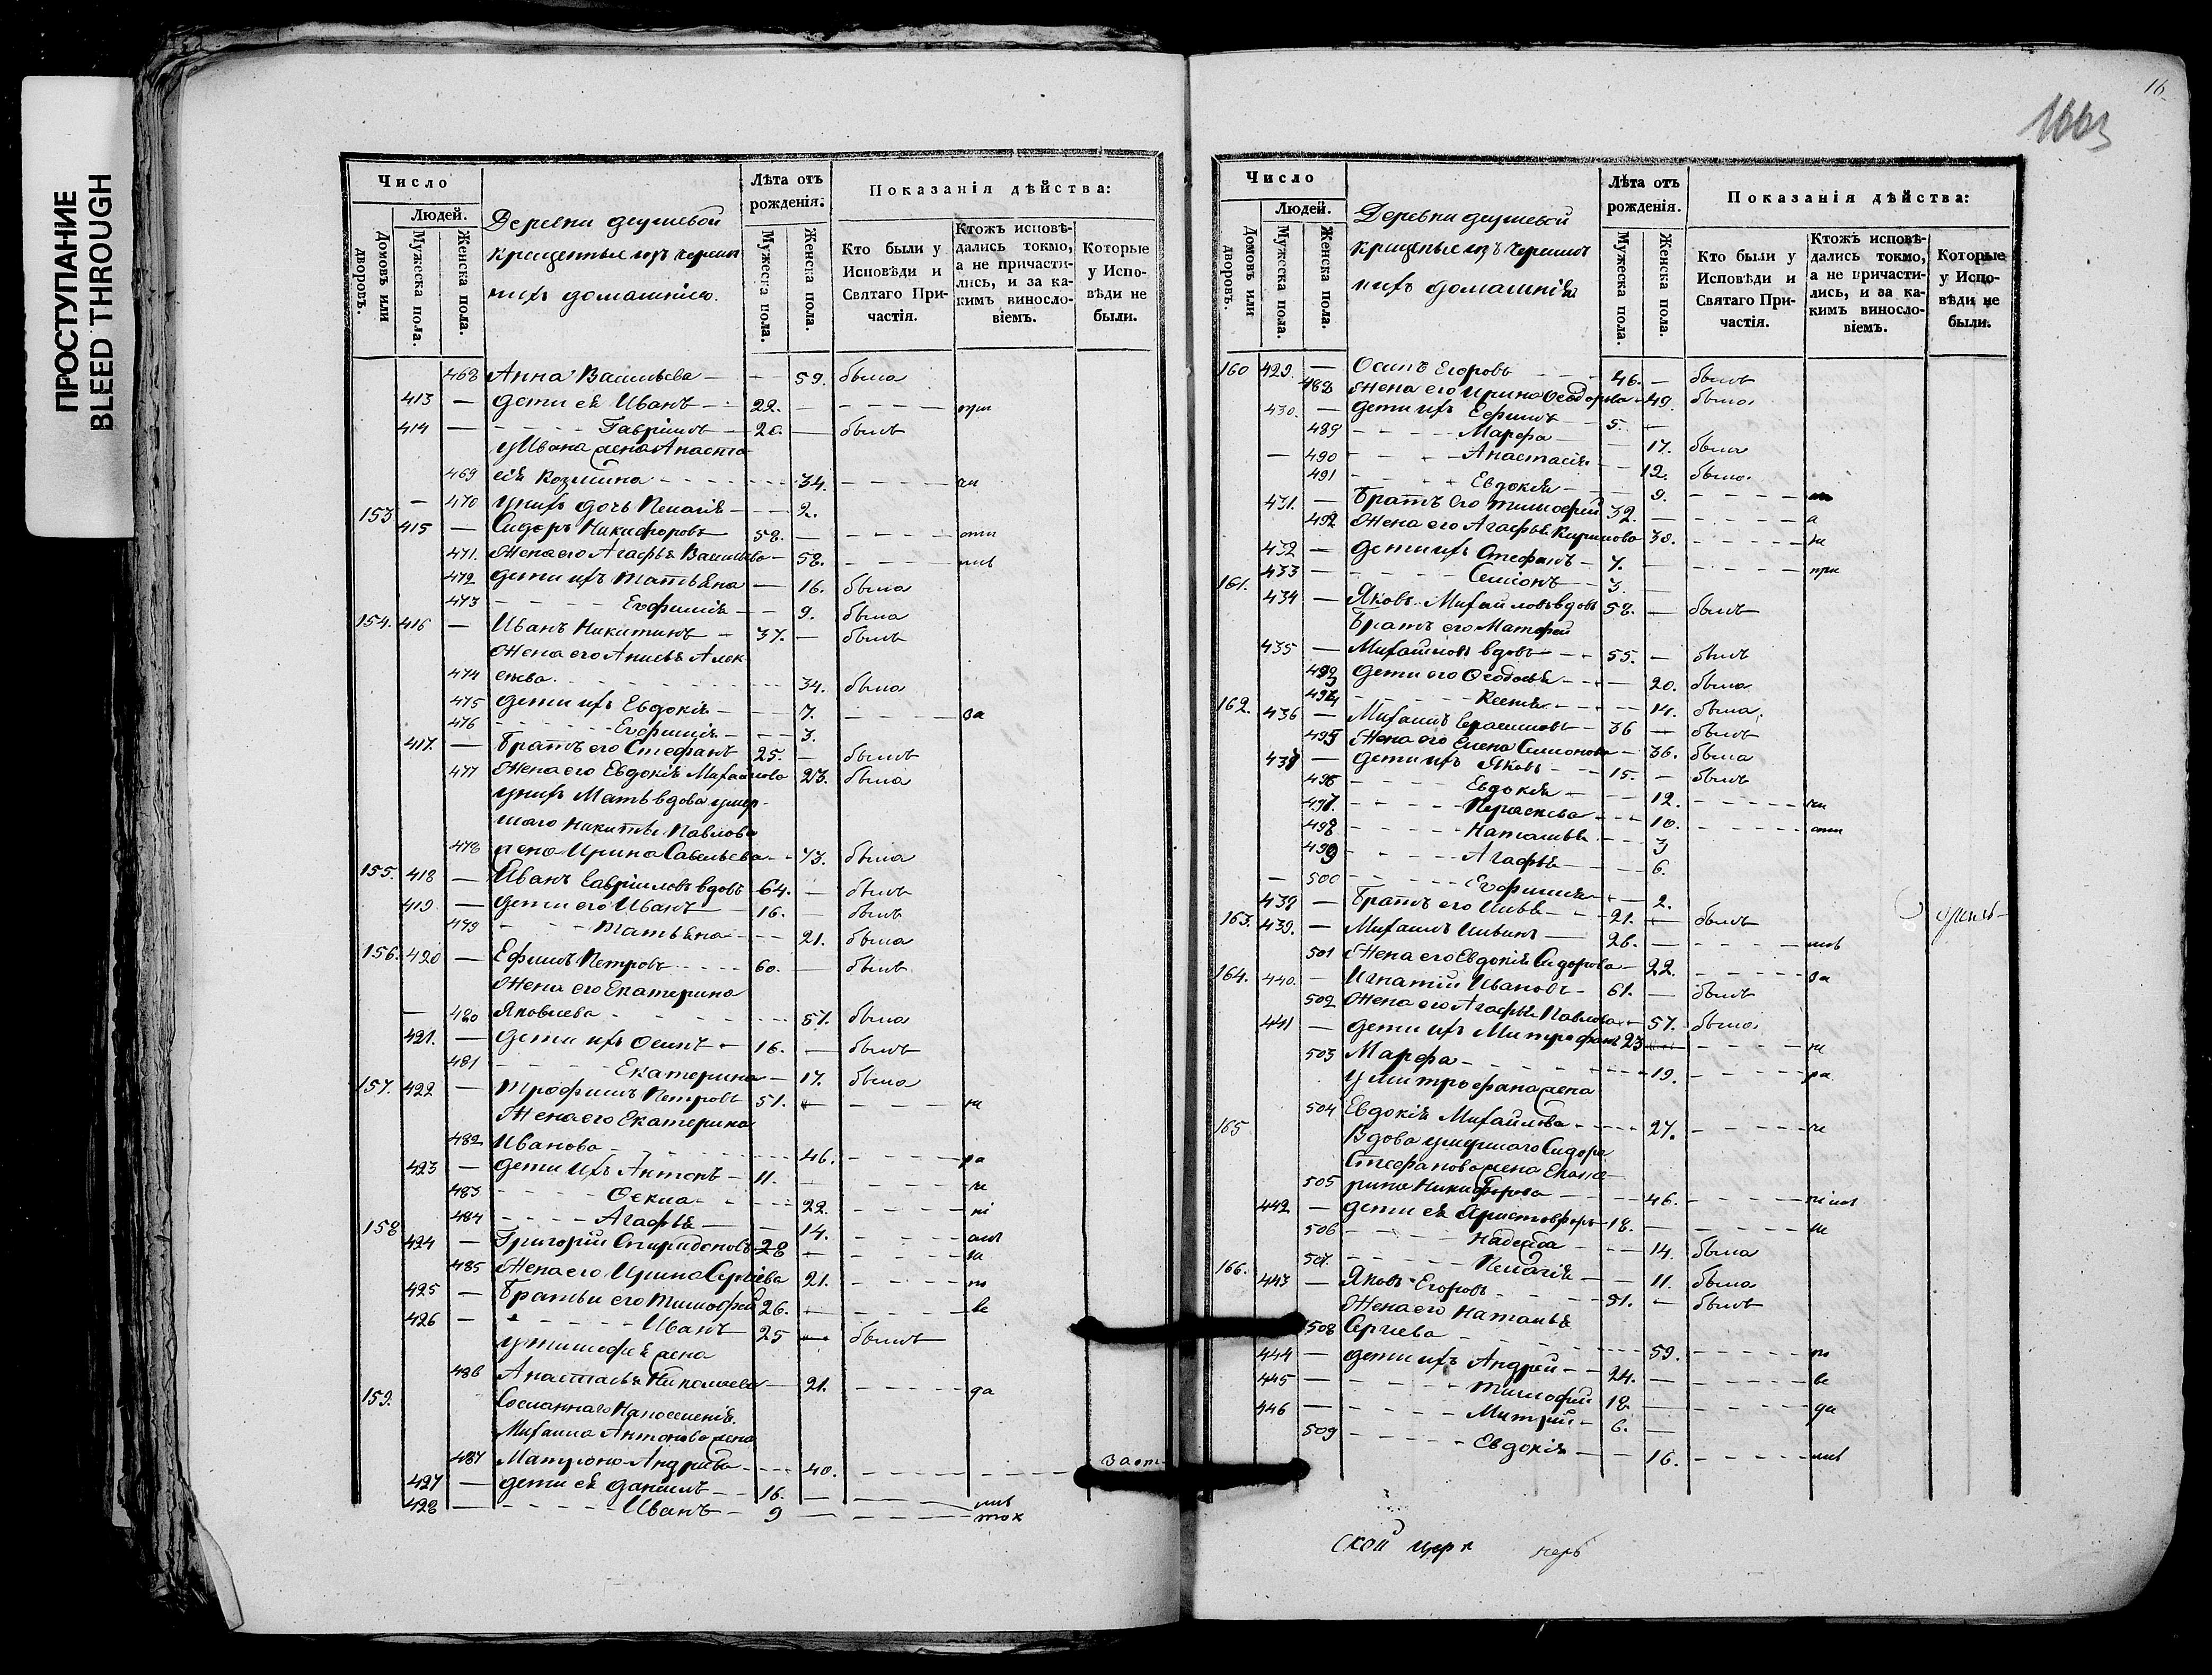 ПРОСТУПАНИЕ
BLEED THROUGH
Число
Людей.
Домовъ или дворовъ.
Мужеска пола.
Женска пола.
Деревни
крещенные изъ
нихъ домашнiя.
Лѣта отъ рожденія.
Мужеска пола.
Женска пола.
Показанія дѣйства:
Кто были у Исповѣди и Святаго Причастія.
Ктожъ исповѣдались токмо, а не причастились, и за какимъ винословіемъ.
Которые у Исповѣди не были.
468 Анна Васильева — 59. была
413 — дети ея Иванъ — 22. — при
414 — Гавріилъ — 20. — былъ
у Ивана жена Анаста
469 сія Козмина 34.
470 у нихъ дочь Пелагія — 2.
153 415 — Сидоръ Никифоровъ 58. —
471. Жена его Агафья Васильева 58.
472 дети ихъ Татьяна — 16. была
473 Евфимія — 9. была
154. 416 — Иванъ Никитинъ — 37. — былъ
Жена его Анисья Алек
474 сеева. 34. была
475 дети ихъ Евдокія — 7. за
476 Евфимія — 3.
417. — Братъ его Стефанъ 25. — былъ
477 Жена его Евдокія Михайлова 23. была
у нихъ Мать вдова умер
шаго Никиты Павлова
478 жена Ирина Савельева 73. была
155. 418 — Иванъ Гавріиловъ вдовъ 64. — былъ
419 — дети его Иванъ — 16. — былъ
479 Татьяна 21. была
156. 420 — Ефимъ Петровъ 60. — былъ
Жена его Екатерина
480 Яковлева 57. была
421. — дети ихъ Осипъ — 16. — былъ
481 Екатерина — 17. была
157. 422 — Трофимъ Петровъ 51. —
Жена его Екатерина
482 Иванова 46.
423 — дети ихъ Антонъ — 11.
483 Фекла 22.
484 Агафья — 14.
158 424 — Григорій Спиридоновъ 28 —
485 Жена его Ирина Сергіева 21.
425 — Братьи его Тимофей 26. —
426 — Иванъ 25 — былъ
у Тимофея жена
486 Анастасья Николаева — 21. да
159. Сосланнаго на поселенія
Михаила Антонова жена
487 Матрона Андреева 40.
427 — дети ея Данилъ — 16. —
428 — Иванъ — 9 —
16
1663
Число
Людей.
Домовъ или дворовъ.
Мужеска пола.
Женска пола.
Деревни
крещеные изъ
нихъ домашнія
Лѣта отъ рожденія.
Мужеска пола.
Женска пола.
Показанія дѣйства:
Кто были у Исповѣди и Святаго Причастія.
Ктожъ исповѣдались токмо, а не причастились, и за какимъ винословіемъ.
Которые у Исповѣди не были.
160 429. — Осипъ Егоровъ 46. — былъ
488 Жена его Ирина Феодорова 49. была
430. — дети ихъ Ефимъ 5. —
489 Марфа — 17. была
490 Анастасія 12. была
491 Евдокія 9.
431. — Братъ его Тимофей 32. —
492 Жена его Агафья Кирилова 30.
432 — дети ихъ Стефанъ — 7. при
433 — Семіонъ 3.
161. 434 — Яковъ Михайловъ вдовъ 58. — былъ
Братъ его Матфей
435 — Михайловъ вдовъ 55. — былъ
493 дети его Феодосья 20. была
494 Ксенія 14. была
162. 436 — Михаилъ Герасимовъ 36 — былъ
495 Жена его Елена Симонова 36. была
437 — дети ихъ Яковъ 15. — былъ
496 Евдокія 12.
497. Параскева 10.
498 Наталья 3
499 Агафья 6.
500 Евфимія 2.
438 — Братъ его Илья 21. — былъ
163. 439. — Михаилъ Ильинъ 26. —
501 Жена его Евдокія Сидорова 22.
164. 440. — Игнатій Ивановъ 61. — былъ
502 Жена его Агафья Павлова 57. была
441 — дети ихъ Митрофанъ 23
503 Марфа 19.
у Митрофана жена
504 Евдокія Михайлова 27.
165 Вдова умершаго Сидора
Стефанова жена Екате
505 рина Никифорова 46.
442 — дети ея Христофоръ 18. —
506 Надежда 14. была
507. Пелагія — 11. была
166. 443 — Яковъ Егоровъ 51. — былъ
Жена его Наталья
508 Сергіева 59.
444 — дети ихъ Андрей 24. —
445 — Тимофей 18 —
446 — Митрій 6. —
509 Евдокія 16.
ской церк